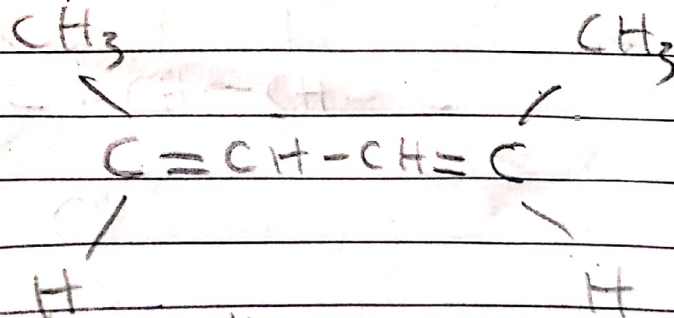 CH3 CH3
C=CH-CH=C
H H